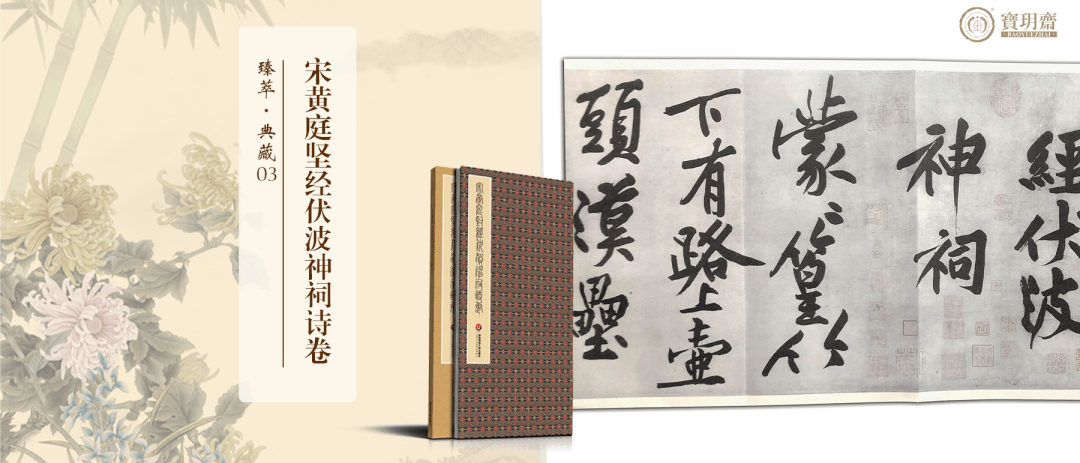 宋黄庭坚经伏波神祠诗卷
臻萃·典藏03
寶玥齋
BAOYUEZHAI
經伏波
神祠
蒙〻篁竹
下有路上壺
頭漢壘